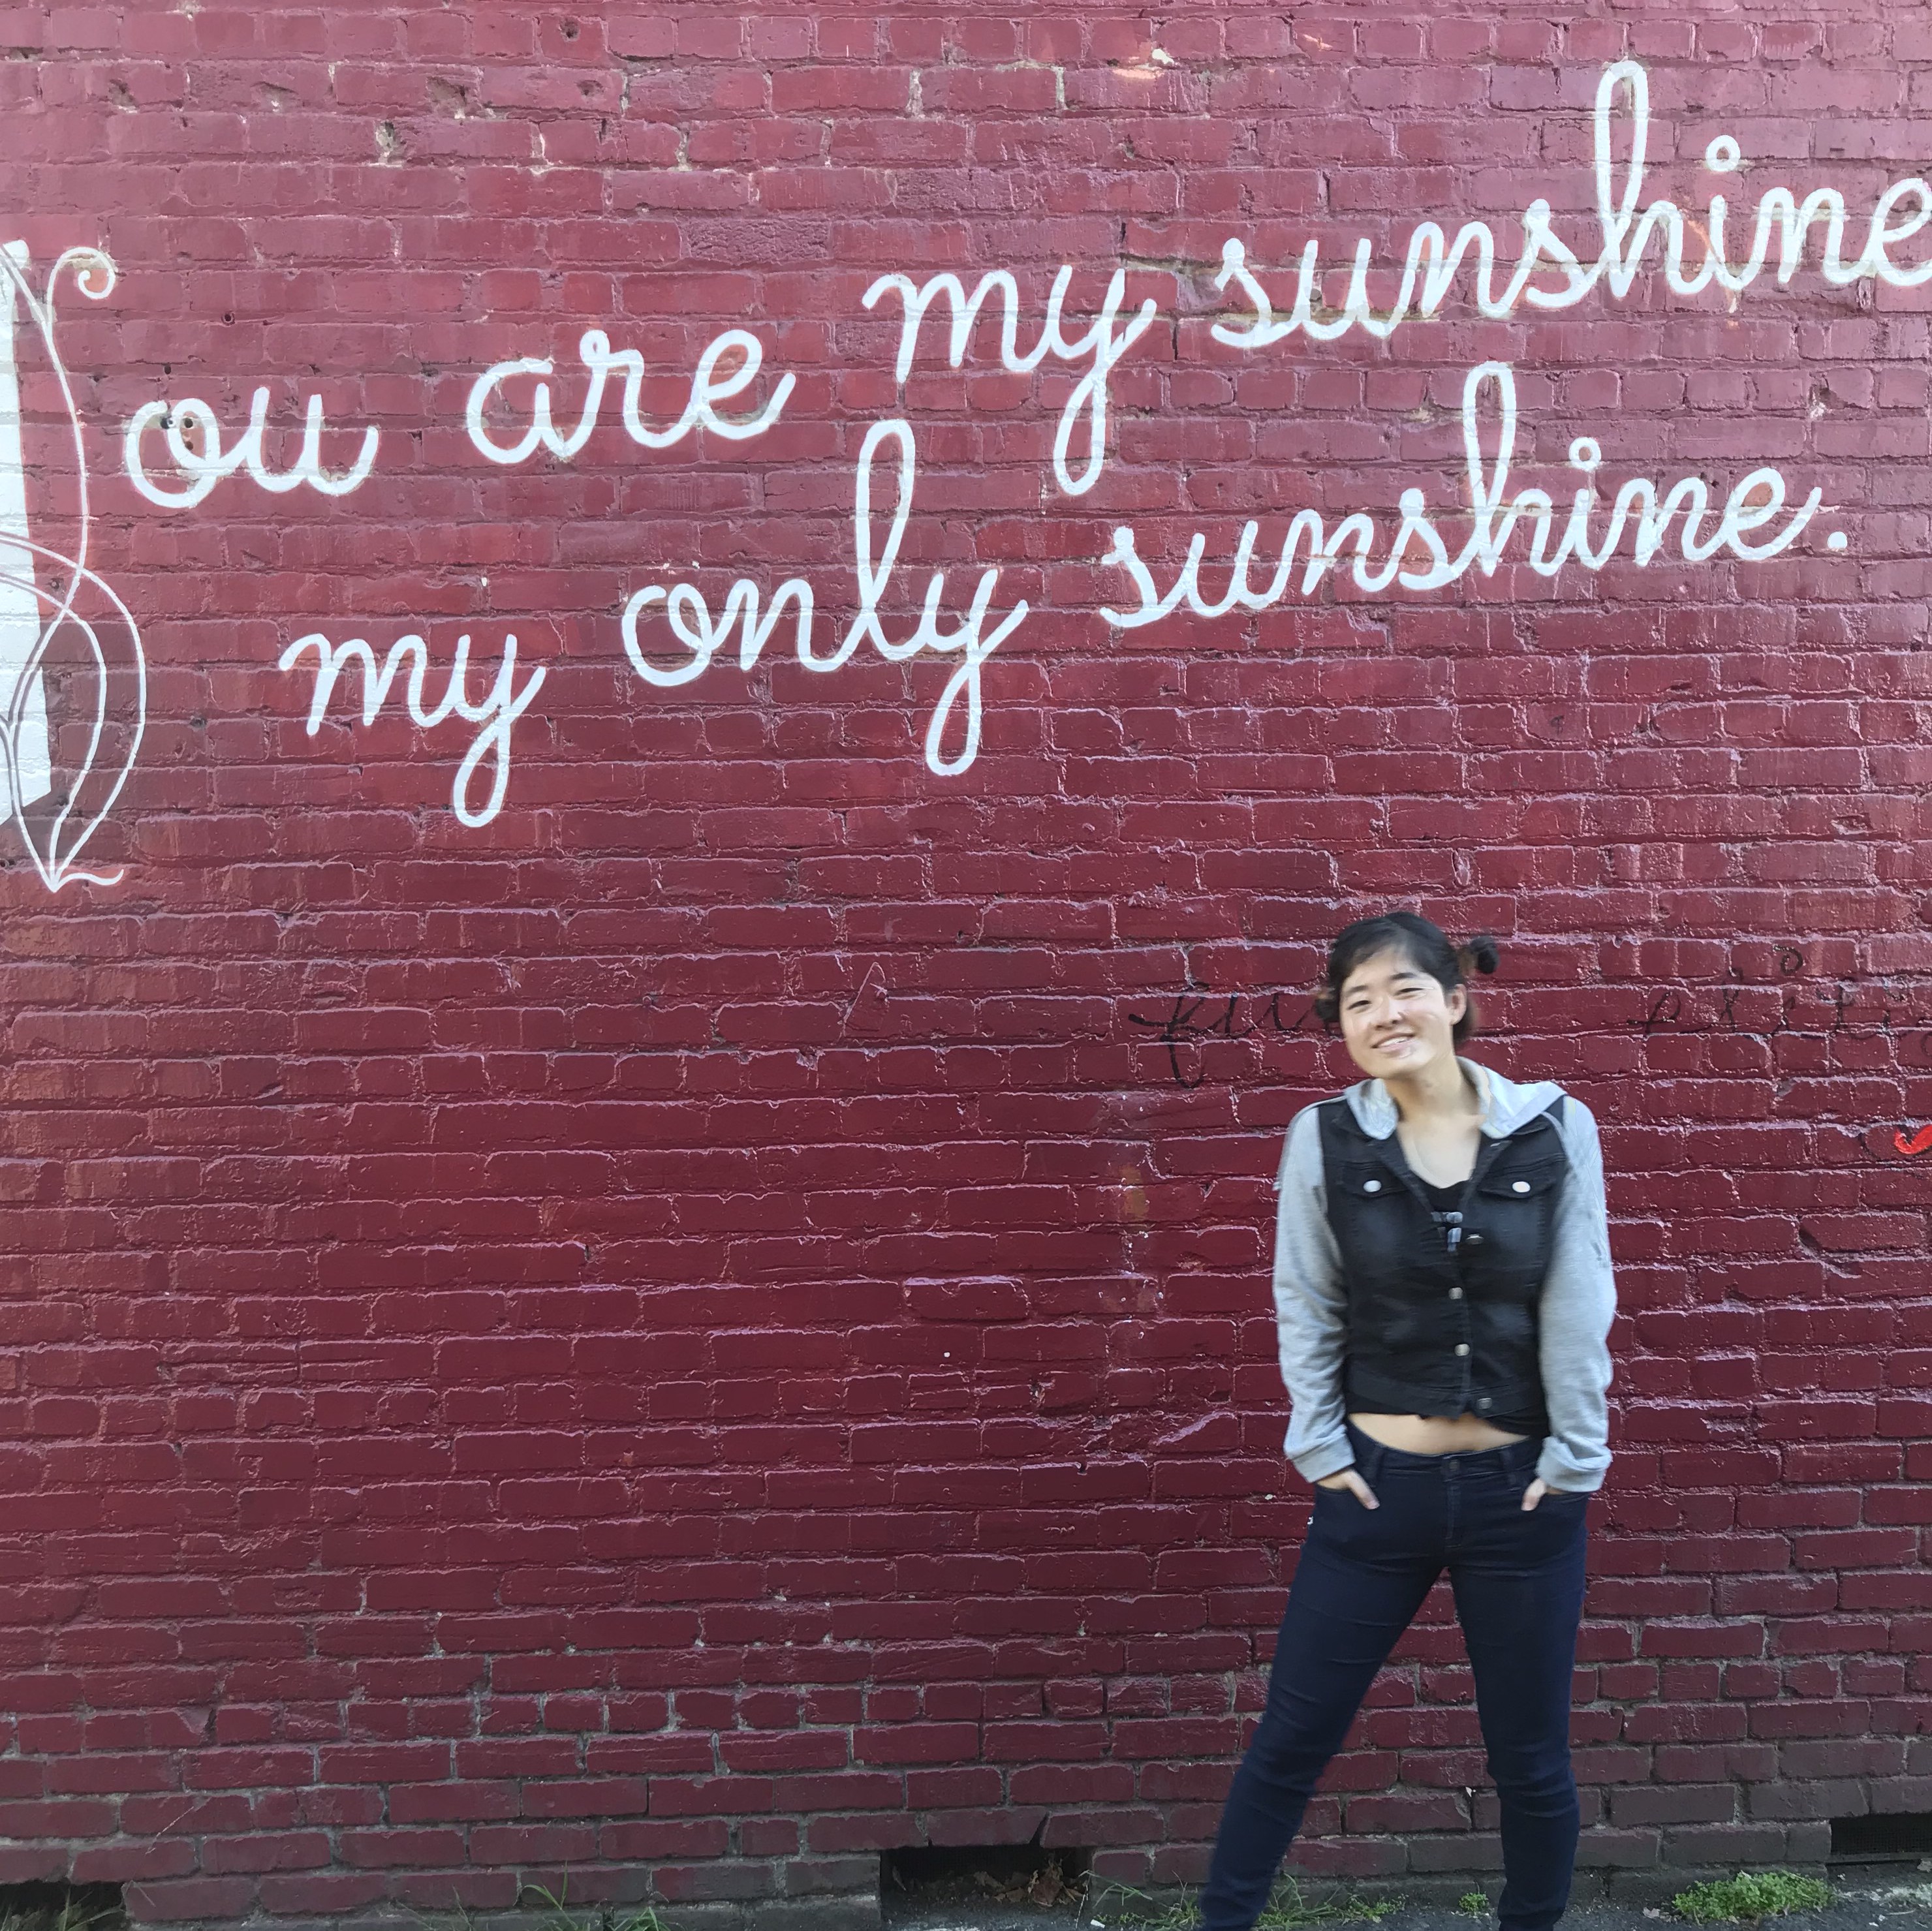 You are my sunshine
my only sunshine.